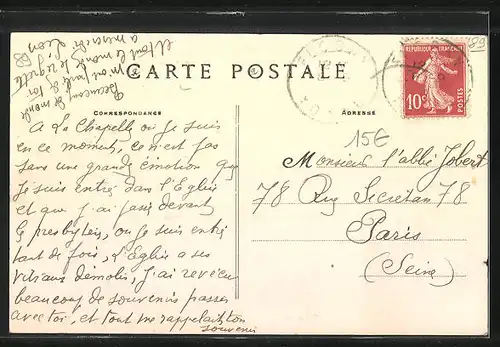 CARTE POSTALE
CORRESPONDANCE
ADRESSE
RÉPUBLIQUE FRANÇAISE
10c
POSTES
15€
89
A La Chapelle où je suis
en ce moment, ce n'est pas
sans une grande émotion que
je suis entré dans l'Eglise
et que j'ai passé devant
le presbytère, où je suis entré
tant de fois, L'Eglise a ses
vitraux démolis, j'ai revécu
beaucoup de souvenirs passés
avec toi, et tout me rappelait ton
souvenir
Beaucoup de monde
m'ont parlé de toi
et tout le monde te regrette
Léon
Monsieur l'abbé Jobert
78 Rue Secretan 78
Paris
(Seine)